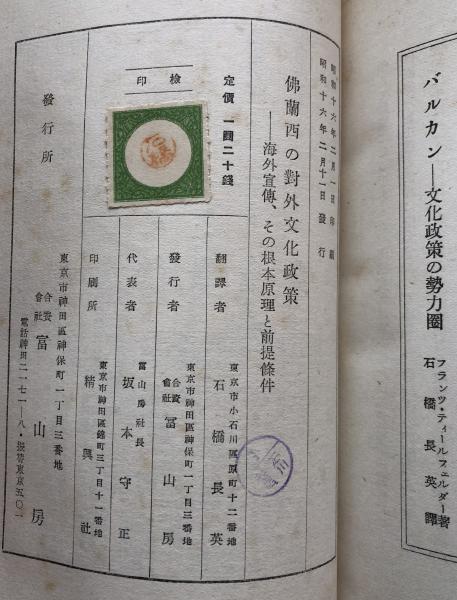 バルカン——文化政策の勢力圏
フランツ・ティールフェルダー著
石橋長英譯
昭和十六年二月一日印刷
昭和十六年二月十一日發行
佛蘭西の對外文化政策
——海外宣傳、その根本原理と前提條件
定價 一圓二十錢
檢印
翻譯者
東京市小石川區原町十二番地
石橋長英
發行者
東京市神田區神保町一丁目三番地
合資會社 冨山房
代表者
冨山房社長
坂本守正
印刷所
東京市神田區錦町三丁目十一番地
精興社
發行所
東京市神田區神保町一丁目三番地
合資會社 冨山房
電話神田二一七一—八・振替東京五〇一